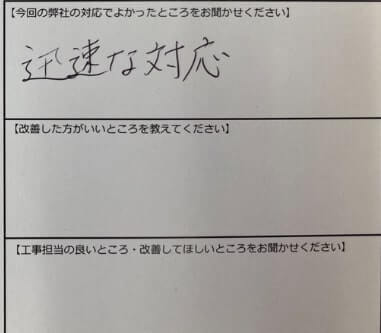 【今回の弊社の対応でよかったところをお聞かせください】
迅速な対応
【改善した方がいいところを教えてください】
【工事担当の良いところ・改善してほしいところをお聞かせください】